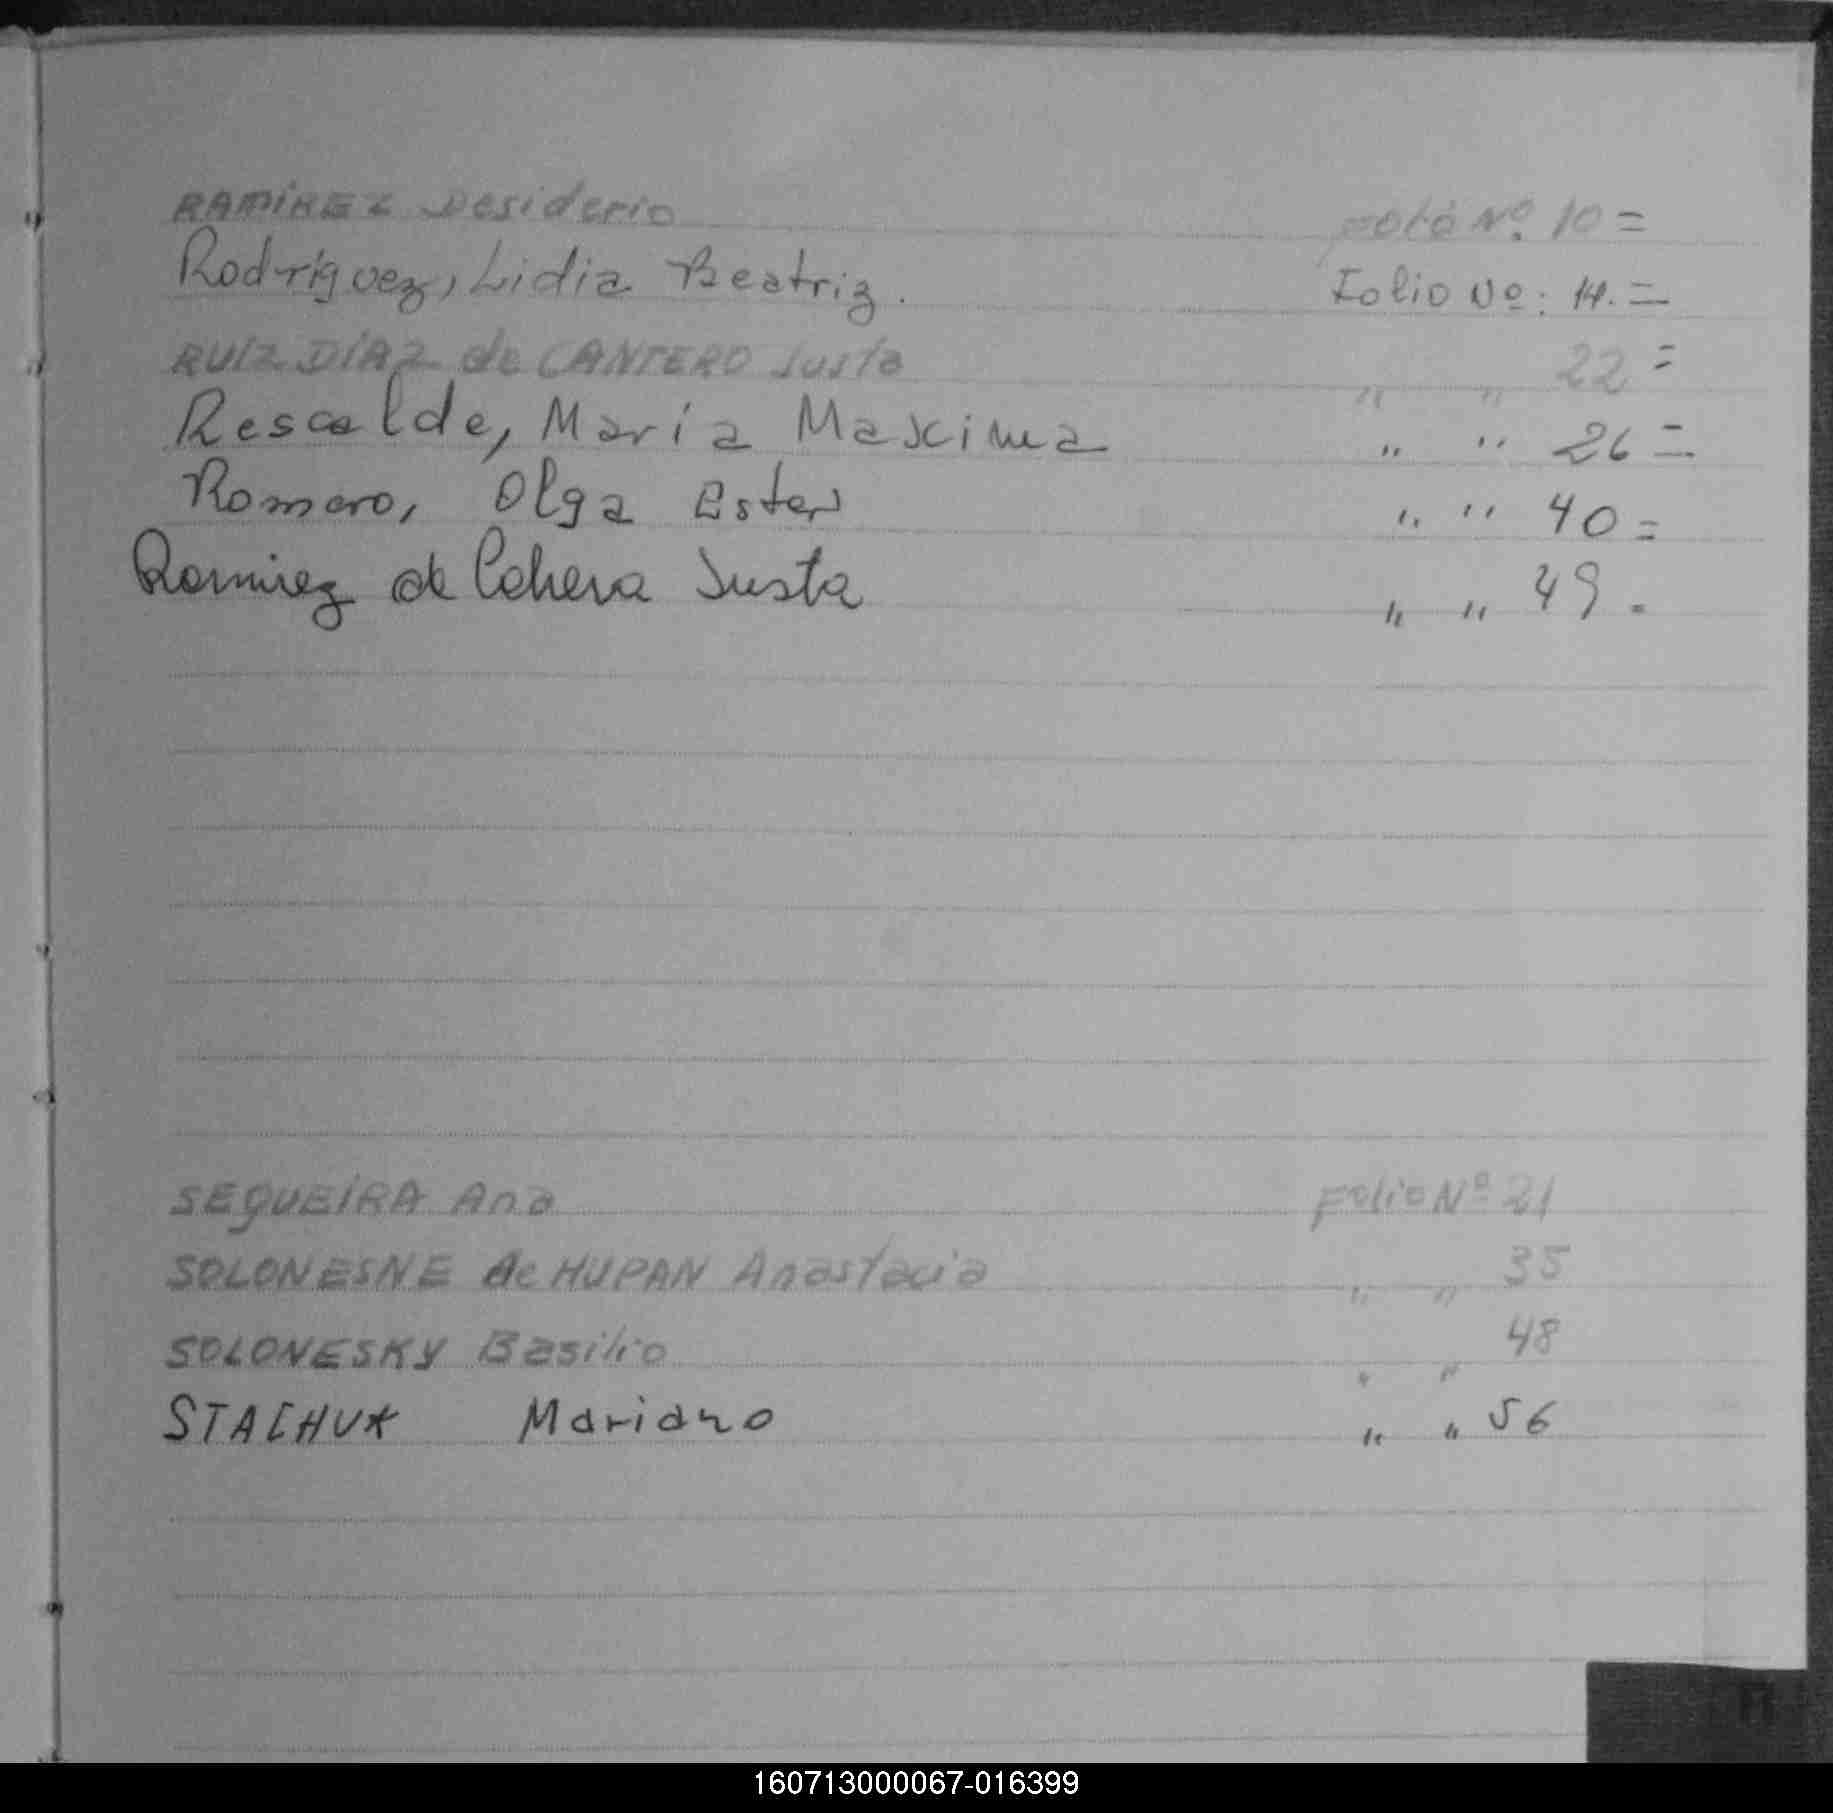 RAMIREZ Desiderio Folio Nº 10 =
Rodríguez, Lidia Beatriz. Folio Nº: 14. =
RUIZ DIAZ de CANTERO Justa " " 22 =
Rescalde, María Maxcima " " 26 =
Romero, Olga Ester " " 40 =
Ramirez de Justa " " 49 .
SEQUEIRA Ana Folio Nº 21
SOLONESNE de HUPAN Anastacia " " 35
SOLONESKY Basilio " " 48
STACHUK Mariano " " 56
160713000067-016399